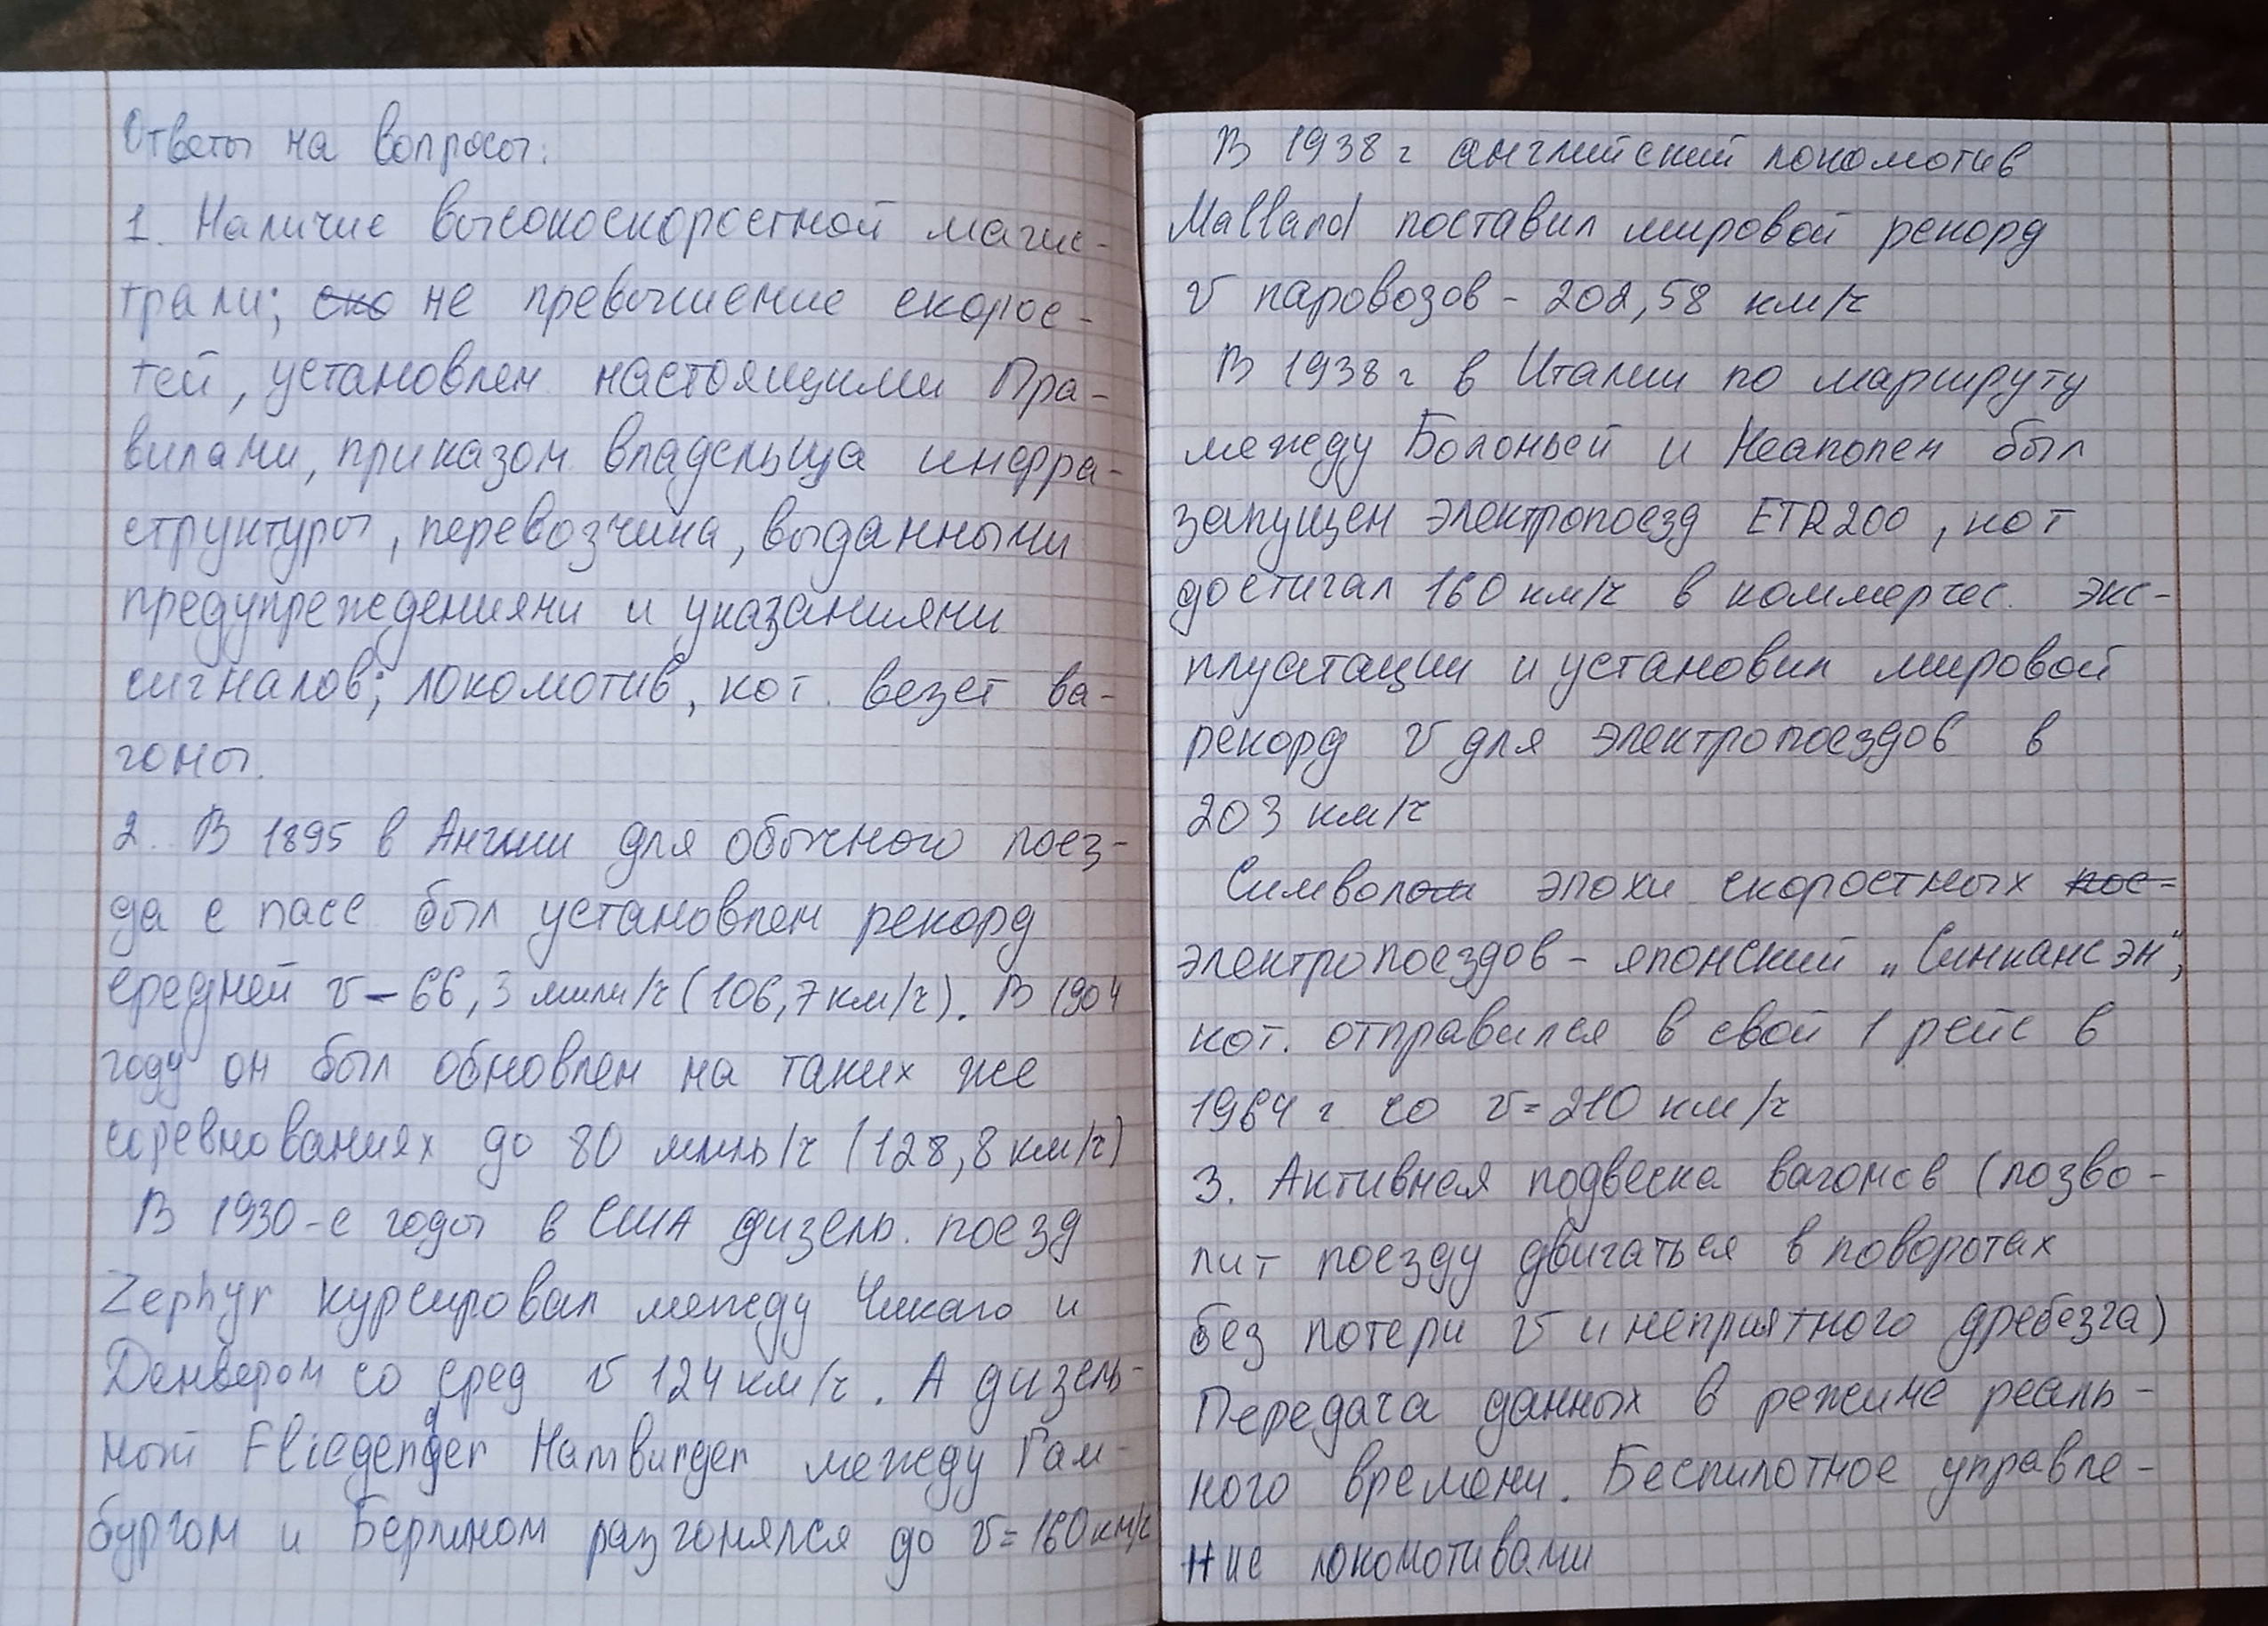 Ответы на вопросы:
1. Наличие высокоскоростной магис-
трали; ско не превышение скорос-
тей, установлен настоящими Пра-
вилами, приказом владельца инфра-
структуры, перевозчика, выданными
предупреждениями и указаниями
сигналов; локомотив, кот. везет ва-
гоны.
2. В 1895 в Англии для обычного поез-
да с пасс был установлен рекорд
средней v – 66,3 мили/ч (106,7 км/ч). В 1904
году он был обновлен на таких же
соревнованиях до 80 миль/ч (128,8 км/ч)
В 1930-е годы в США дизель. поезд
Zephyr курсировал между Чикаго и
Денвером со сред v 124 км/ч. А дизель-
ный Fliegender Hamburger между Гам-
бургом и Берлином разгонялся до v = 160 км/ч
В 1938 г английский локомотив
Malland поставил мировой рекорд
v паровозов - 202,58 км/ч
В 1938 г в Италии по маршруту
между Болоньей и Неаполем был
запущен электропоезд ETR200, кот
достигал 160 км/ч в коммерчес. экс-
плуатации и установил мировой
рекорд v для электропоездов в
203 км/ч
Символом эпохи скоростных пое-
электропоездов – японский „Синкансэн",
кот. отправился в свой 1 рейс в
1964 г со v = 210 км/ч
3. Активная подвеска вагонов (позво-
лит поезду двигаться в поворотах
без потери v и неприятного дребезга)
Передача данных в режиме реаль-
ного времени. Беспилотное управле-
ние локомотивами